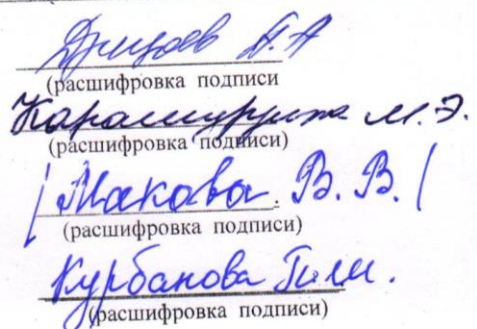 Дзицоев А.А
(расшифровка подписи
М.Э.
(расшифровка подписи)
/ Макова В.В. /
(расшифровка подписи)
Курбанова П.М.
(расшифровка подписи)